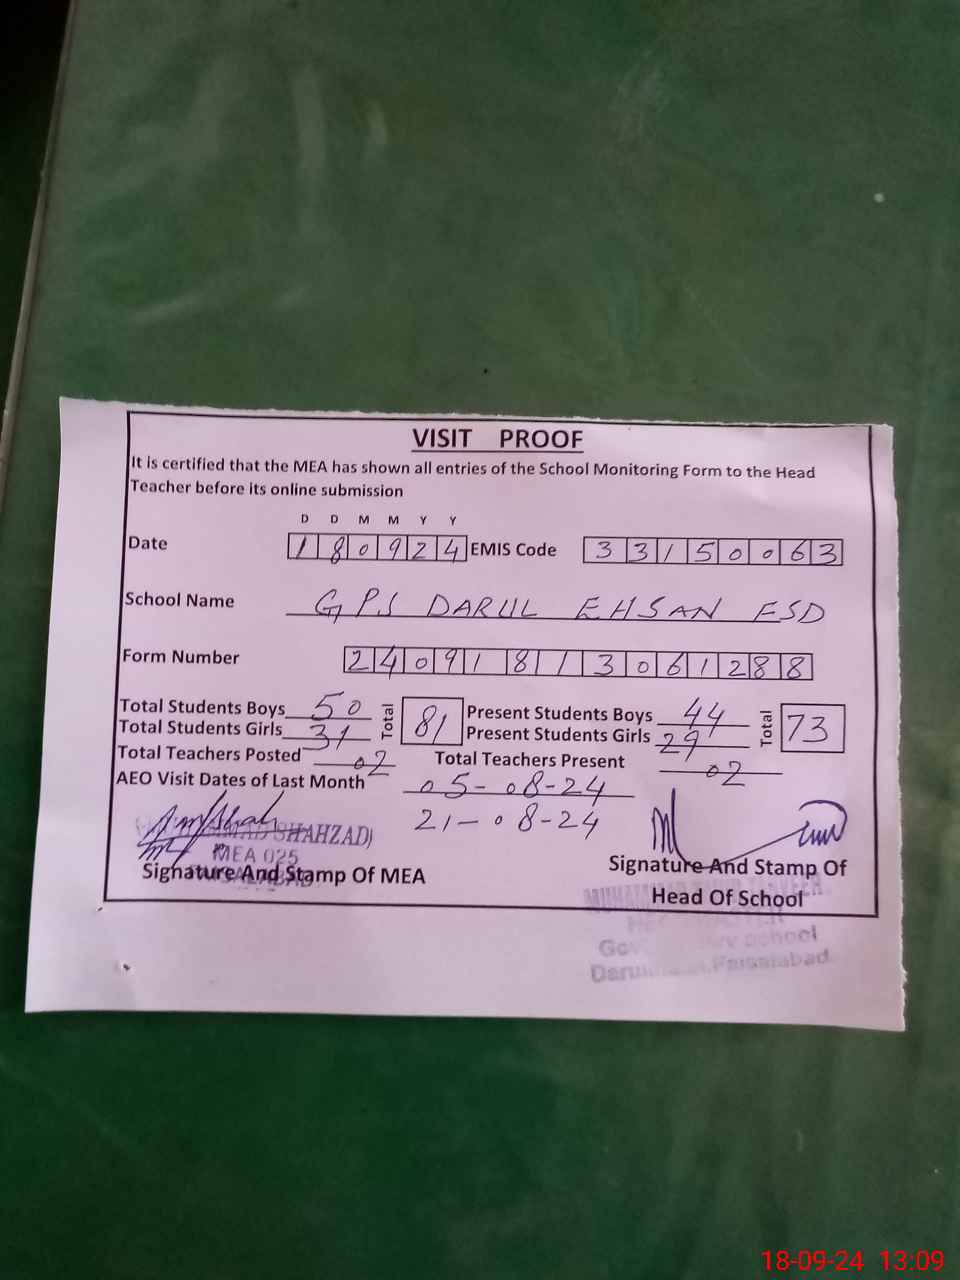 VISIT PROOF
It is certified that the MEA has shown all entries of the School Monitoring Form to the Head
Teacher before its online submission
D D M M Y Y
Date 1 8 0 9 2 4 EMIS Code 3 3 1 5 0 0 6 3
School Name GPS DARUL EHSAN FSD
Form Number 2 4 0 9 1 8 1 3 0 6 1 2 8 8
Total Students Boys 50 Total 81 Present Students Boys 44 Total 73
Total Students Girls 31 Present Students Girls 29
Total Teachers Posted 02 Total Teachers Present 02
AEO Visit Dates of Last Month 05-08-24
21-08-24
SHAHZAD)
MEA 025
Signature And Stamp Of MEA
Signature And Stamp Of
Head Of School
School
Faisalabad
18-09-24 13:09